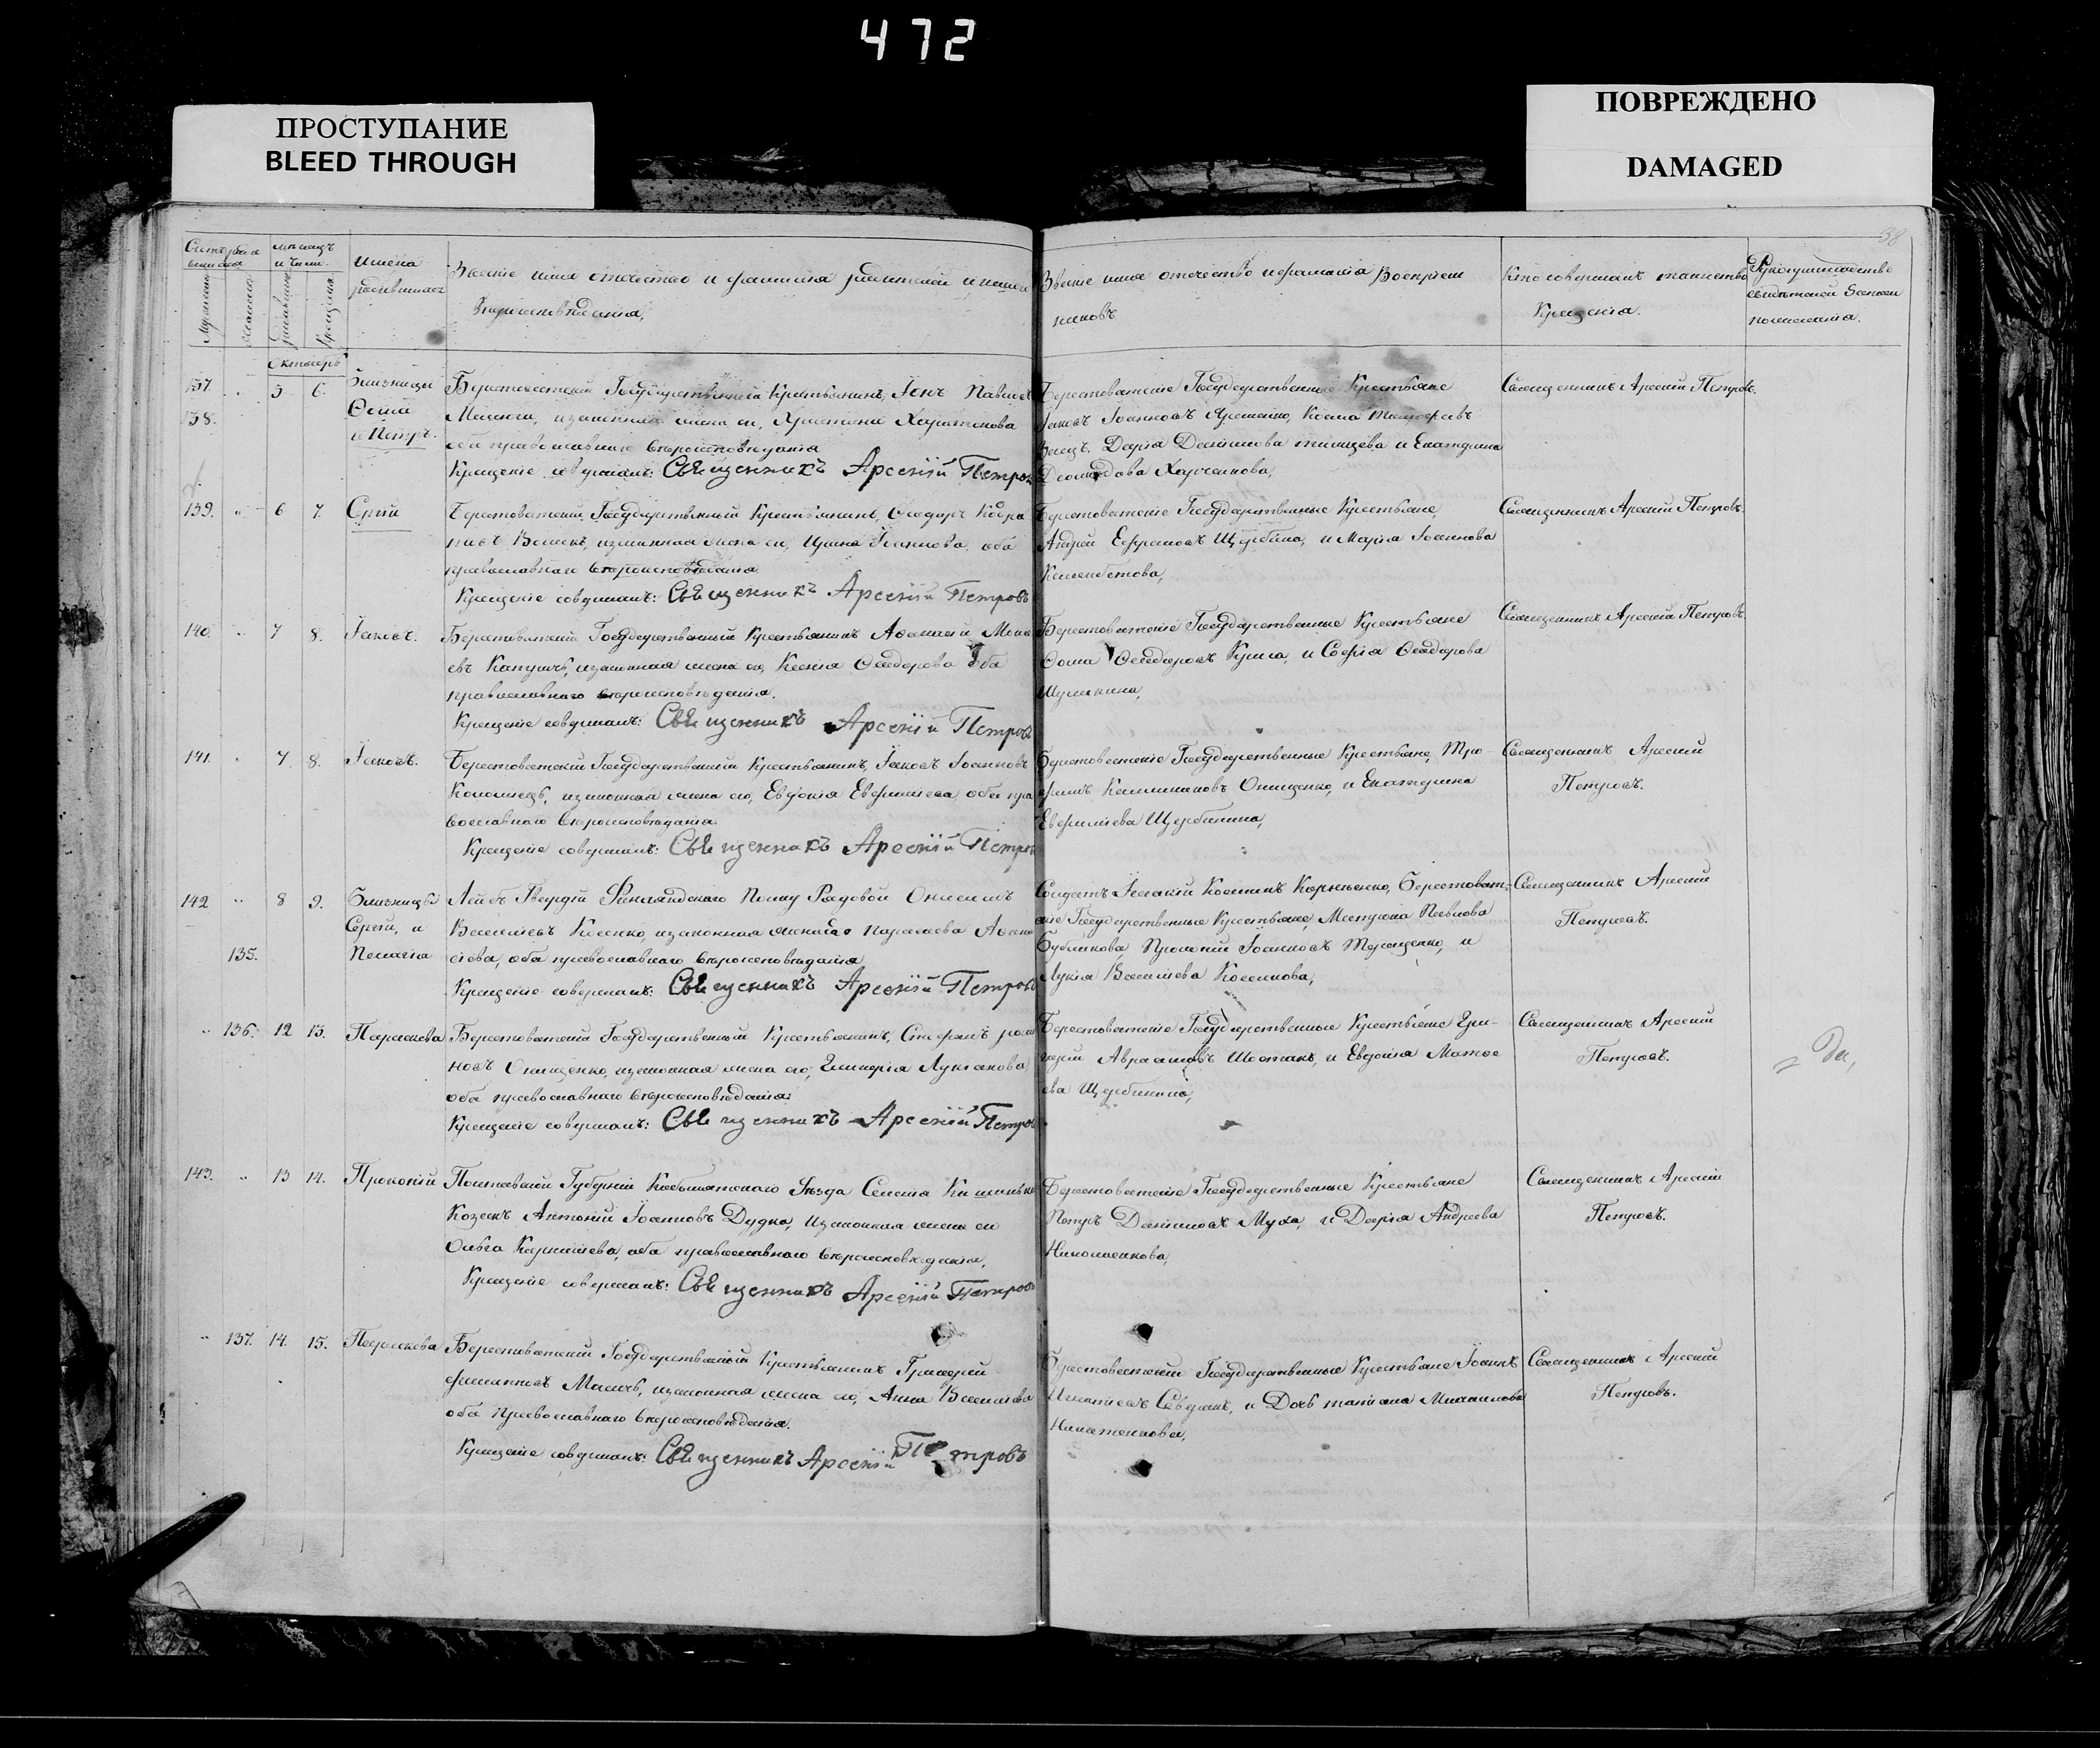 472
ПРОСТУПАНИЕ
BLEED THROUGH
ПОВРЕЖДЕНО
DAMAGED
38
Счетъ родив
шихся
Мужескаго
Женскаго
мѣсяцъ
и число.
рожденія
Крещенія
имена
родившихся
Званіе имя отчество и фамилія родителей и какого
Вѣроисповѣданія,
Званіе имя отчество и фамилія Воспріем
никовъ
Кто совершалъ таинство
Крещенія.
Рукоприкладство
свидѣтелей записи
по желанію.
Октябрь
137. 5 6. Близнецы
138. Ѳома
и Петръ.
Берестоватскій Государственный Крестьянинъ,
законная жена его, Христина Харитонова
оба православнаго вѣроисповѣданія
Крещеніе совершалъ: Священникъ Арсеній Петровъ
Берестоватскіе Государственные Крестьяне
Яковъ Іоанновъ Косма Тимофеевъ
Дарія и Екатерина
Харченкова,
Священникъ Арсеній Петровъ.
139. " 6 7. Сергій
Берестоватскій Государственный Крестьянинъ, Ѳеодоръ
законная жена его, Ирина оба
православнаго вѣроисповѣданія
Крещеніе совершалъ: Священникъ Арсеній Петровъ
Берестоватскіе Государственные Крестьяне,
Андрей Щербина, и Марія Іоаннова
Священникъ Арсеній Петровъ.
140. " 7 8. Іаковъ.
Берестоватскій Государственный Крестьянинъ Аѳанасій
законная жена его, Ксенія Ѳеодорова оба
православнаго вѣроисповѣданія.
Крещеніе совершалъ: Священникъ Арсеній Петровъ
Берестоватскіе Государственные Крестьяне
Ѳома Ѳеодоровъ и Софія Ѳеодорова
Священникъ Арсеній Петровъ.
141. " 7 8. Іаковъ.
Берестоватскій Государственный Крестьянинъ, Іаковъ Іоанновъ
Коломіецъ, законная жена его, Евдокія Евфиміева оба пра
вославнаго вѣроисповѣданія.
Крещеніе совершалъ: Священникъ Арсеній Петровъ
Берестоватскіе Государственные Крестьяне, Тро
фимъ Каллиниковъ Онищенко, и Екатерина
Евфиміева Щербинина,
Священникъ Арсеній
Петровъ.
142 " 8 9. Близнецы
Сергій, и
135. Пелагія
Лейбъ Гвардій Финляндскаго Полку Рядовой Онисимъ
Василіевъ Косенко, законная жена его Параскева Аѳана
сіева, оба православнаго вѣроисповѣданія
Крещеніе совершалъ: Священникъ Арсеній Петровъ
Солдатъ Козминъ Корниенко, Берестоват-
скіе Государственные Крестьяне, Матрона Павлова
Бубликова, Прокопій Іоанновъ Терещенко, и
Лукія Василіева
Священникъ Арсеній
Петровъ.
" 136. 12 13. Параскева
Берестоватскій Государственный Крестьянинъ, Стефанъ рома
новъ Онищенко, законная жена его, Гликерія Лукіанова
оба православнаго вѣроисповѣданія.
Крещеніе совершалъ: Священникъ Арсеній Петровъ
Берестоватскіе Государственные Крестьяне Гри-
горій Авраамовъ Шостакъ, и Евдокія Матѳе
ева Щербинина,
Священникъ Арсеній
Петровъ.
143. " 13 14. Прокопій
Полтавской Губерніи Кобылякскаго Уѣзда
Козакъ Антоній Іоанновъ Дудка, законная жена его
Ольга Корниліева, оба православнаго вѣроисповѣданія,
Крещеніе совершалъ: Священникъ Арсеній Петровъ
Берестоватскіе Государственные Крестьяне
Петръ Даниловъ Муха, и Дарія Андреева
Священникъ Арсеній
Петровъ.
" 137. 14. 15. Параскева
Берестоватскій Государственный Крестьянинъ Григорій
законная жена его, Анна Василіева
оба православнаго вѣроисповѣданія.
Крещеніе совершалъ: Священникъ Арсеній Петровъ
Берестоватскій Государственные Крестьяне Іоаннъ
Игнатіевъ и Дочь татіана Михаилова
Священникъ Арсеній
Петровъ.